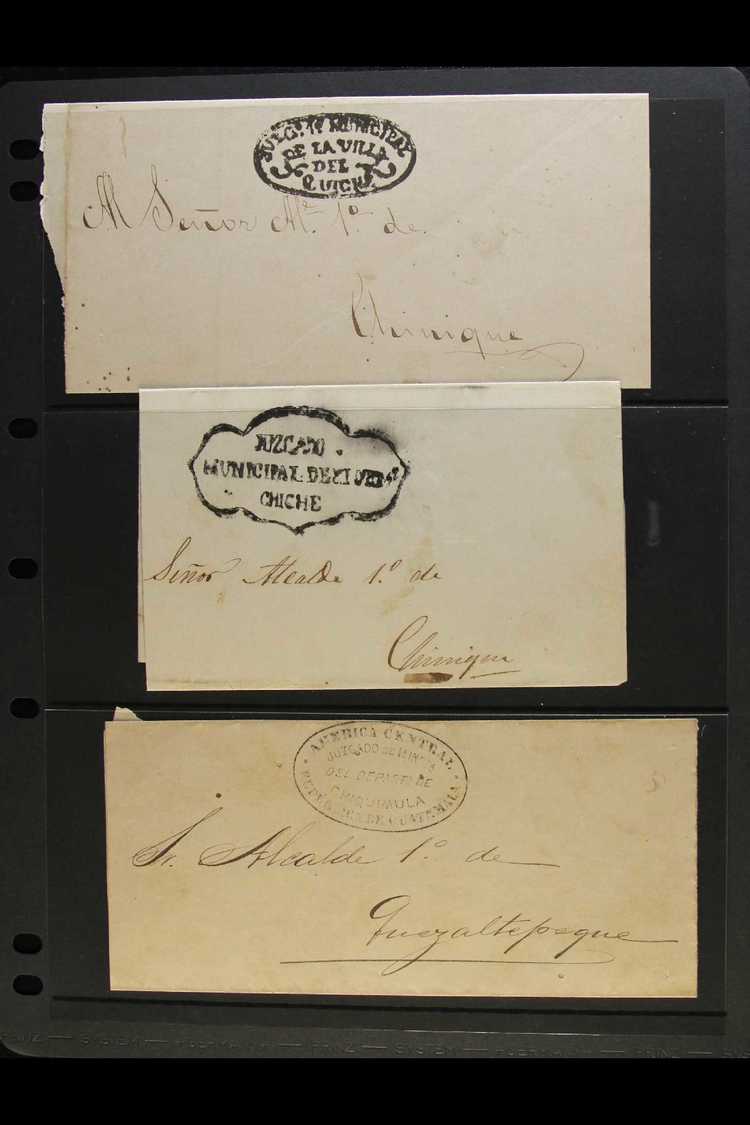 JUZGº. 1º. MUNICIPAL
DE LA VILLA
DEL
QUICHÉ
Al Señor Ale. 1º de
Chinique
JUZGADO
MUNICIPAL DEL
CHICHE
Señor Alcalde 1º de
Chinique
AMERICA CENTRAL
JUZGADO DE 1ª
DEL DEPARTO DE
CHIQUIMULA
REPUBLICA DE GUATEMALA
Sr. Alcalde 1º de
Quezaltepeque
PRINZ — SYSTEM — — PRINZ — SYSTEM — — PRINZ —